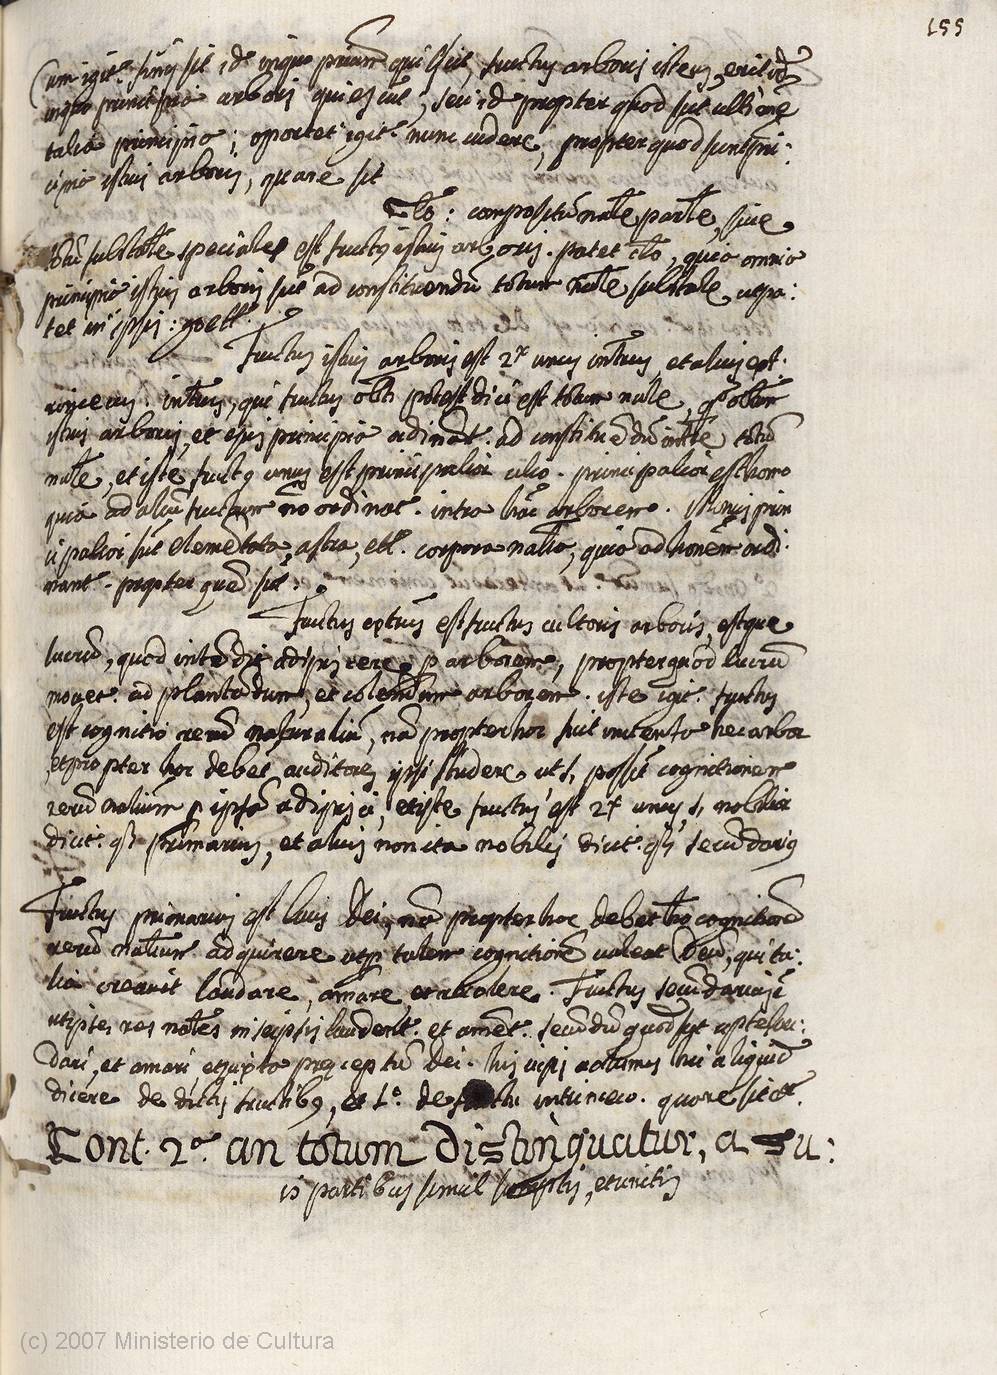 155
Cum igit. finis sit id inquo primum quiescit, fructus arboris istius, erit id
inquo principia arboris quiescut, seu id propter quod sut ultime
talia principia; oportet igit. nunc videre, propter quod sunt prin:
cipia istius arboris, quare sit
Clo: compositu nale parle, sive
totu substale speciale est fructus istius arboris. patet clo, quia omnia
principia istius arboris sut ad constituendu totum nale substale, ut pa:
tet in ipsis: go ett.
Fructus istius arboris est 2x unus intrus, et alius ext:
rinsecus. intrus, qui fructus obti potest dici est totum nale,
istius arboris, et ejus principia ordinat. ad constituedu totu
nale, et iste fructus unus est principalior alio. principalior est homo
quia ad aliu fructum no ordinat. intra hac arborem. Minus prin
cipalior sut elemetata, astra, ett. corpora nalia, quia ad homem ordi:
nant. propter que sut.
Fructus extrus est fructus cultoris arboris, estque
lucru, quod intedit adipiscere p arborem, propter quod lucru
movet. ad plantadum, et colendum arborem. iste igit. fructus
est cognitio reru naturaliu, na propter hoc fuit inventa hec arbor
et propter hoc debet auditores ipsi studere ut s, possit cognitionem
reru nalium p ipsa adipisci, et iste fructus est 2x unus, s, nobilior
dicit. qs primarius, et alius non ita nobilis dicit. qs secundarius
Fructus primarius est laus Dei, na propter hoc debet ho cognitione
reru nalium adquirere ut p talem cognitione valeat Deu, qui ta:
lia creavit laudare, amare, et recolere. Fructus secundarius e
ut ipse res nales in se ipsis laudent. et ament. secundu quod sut aptae lau:
dari, et amari, et juxta praeceptu Dei. his visis aliquid
dicere de dictis fructibus, et 1o. de fructu intrinseco. quare sit
Cont. 2a. an totum Distinguatur, a Su:
is partibus simul sumptis, et unitis
(c) 2007 Ministerio de Cultura